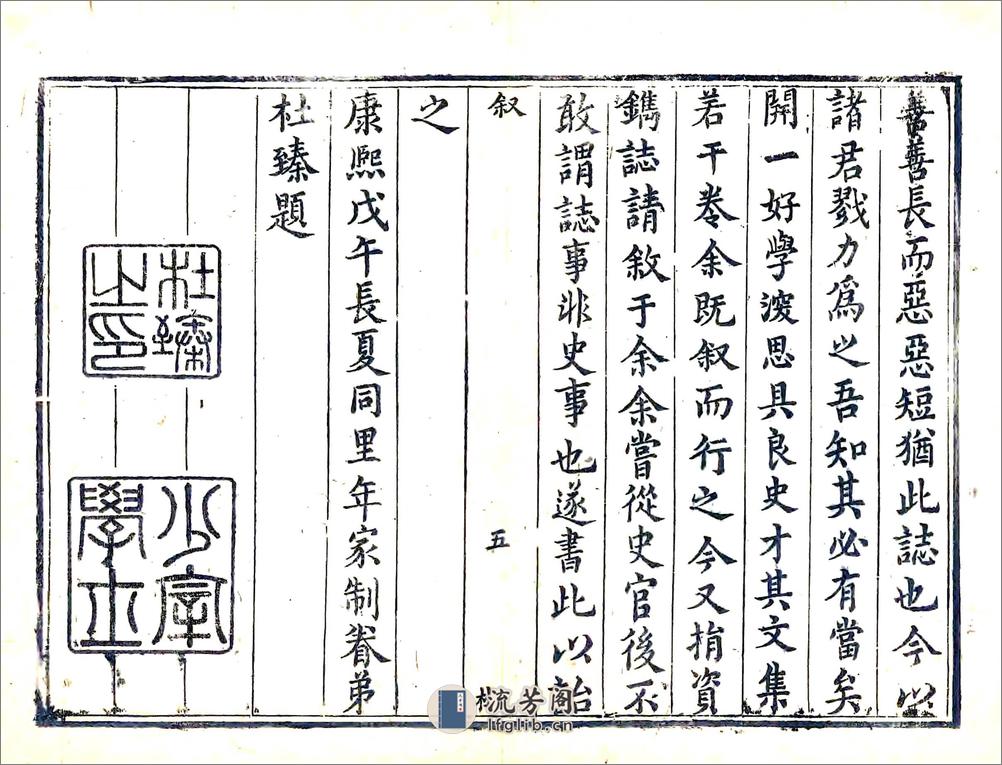 善善長而惡惡短猶此誌也今以
諸君戮力爲之吾知其必有當矣
開一好學湥思具良史才其文集
若干卷余既叙而行之今又捐資
鐫誌請敘于余余嘗從史官後不
敢謂誌事非史事也遂書此以詒
叙
五
之
康熙戊午長夏同里年家制眷弟
杜臻題
杜臻之印
少宰學士
桫流芳閣
lfglib.cn